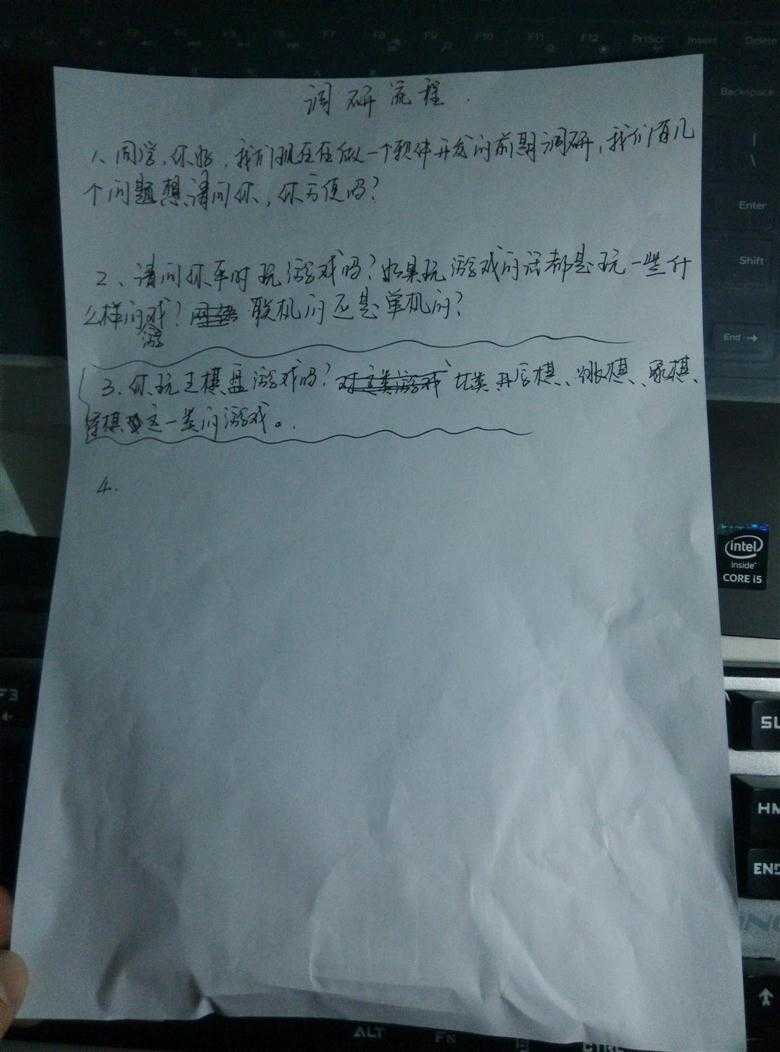 调研流程.
1、同学,你好,我们现在在做一个软件开发的前期调研,我们有几
个问题想请问你,你方便吗?
2、请问你平时玩游戏吗?如果玩游戏的话都是玩一些什
么样的游戏? 联机的还是单机的?
3.你玩过棋盘游戏吗? 对这类游戏 比类 五子棋、跳棋、象棋、
军棋这一类的游戏。
4.
F7
F8
F9
F10
F11
F12
PrtScr
Insert
Delete
Backspace
Enter
Shift
End →
intel
inside
CORE i5
F3
HM
END
ALT
FN
CTRL